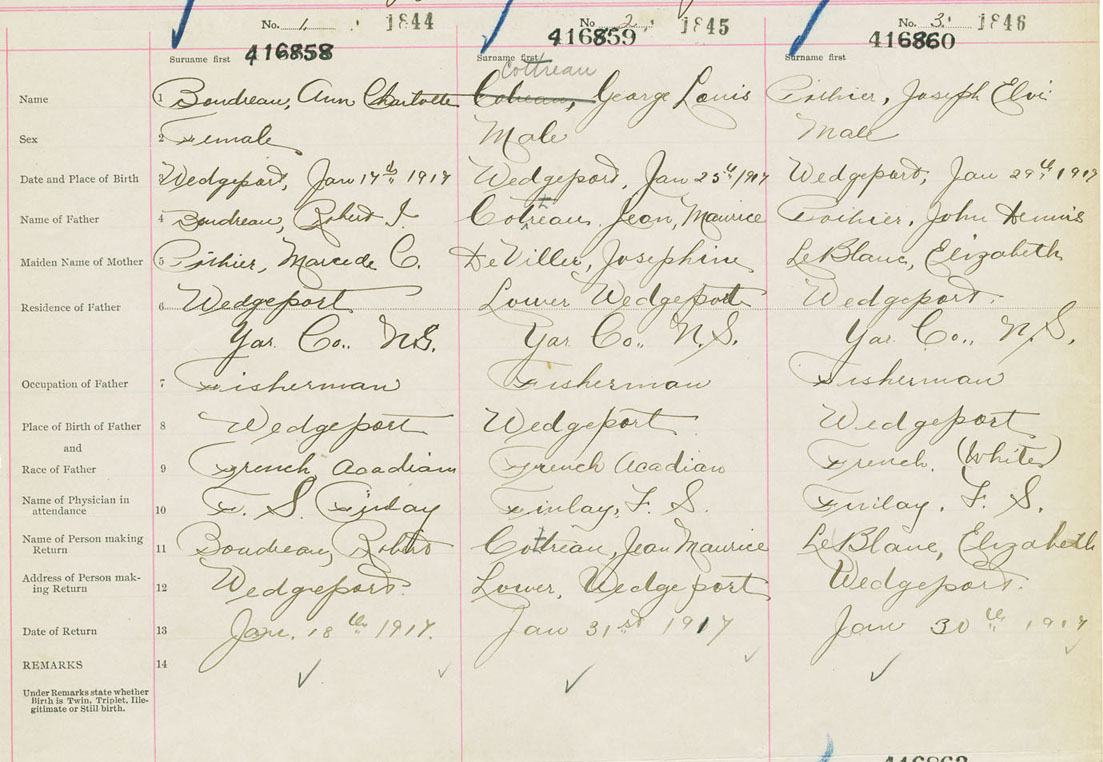 No. 1. 1844 No 2. 1845 No. 3. 1846
416858 416859 416860
Surname first Surname first Surname first
Cottreau
Name 1 Boudreau, Ann Charlotte Cotreau, George Louis Pothier, Joseph Elvi
Sex 2 Female Male Male
Date and Place of Birth 3 Wedgeport, Jan 17th 1917 Wedgeport, Jan 25th 1917 Wedgeport, Jan 29th 1917
Name of Father 4 Boudreau, Robert J. Cottreau, Jean Maurice Pothier, John Dennis
Maiden Name of Mother 5 Pothier, Marcede C. DeViller, Josephine LeBlanc, Elizabeth
Residence of Father 6 Wedgeport Lower Wedgeport Wedgeport.
Yar. Co., N.S. Yar Co., N.S. Yar Co., N.S.
Occupation of Father 7 Fisherman Fisherman Fisherman
Place of Birth of Father 8 Wedgeport Wedgeport Wedgeport
and
Race of Father 9 French Acadian French Acadian French (White)
Name of Physician in attendance 10 F. S. Finlay Finlay, F. S. Finlay, F. S.
Name of Person making Return 11 Boudreau, Robert Cottreau, Jean Maurice LeBlanc, Elizabeth
Address of Person making Return 12 Wedgeport. Lower, Wedgeport Wedgeport.
Date of Return 13 Jan. 18th 1917. Jan 31st 1917 Jan 30th 1917
REMARKS 14
Under Remarks state whether
Birth is Twin, Triplet, Ille-
gitimate or Still birth.